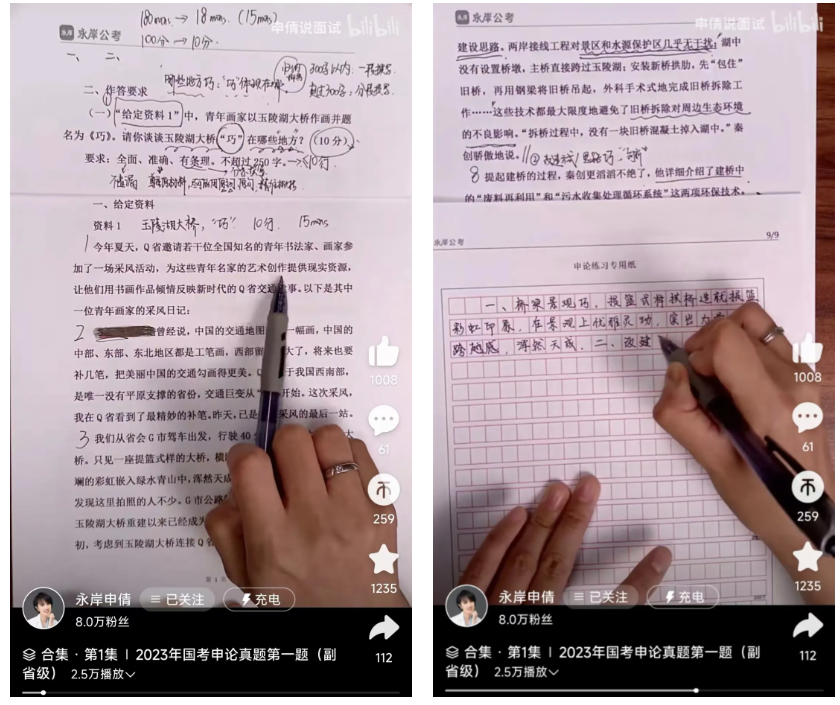 180mins → 18mins (15mins)
100分 → 10分
永岸公考
申倩说面试 bilibili
一、 二、
300字以内：一段撰写
二、作答要求
（一）“给定资料1”中，青年画家以玉陵湖大桥作画并题
名为《巧》。请你谈谈玉陵湖大桥“巧”在哪些地方？（10分）
要求：全面、准确、有条理。不超过250字。→≤10行
一、给定资料
资料1 玉陵湖大桥，“巧” 10行 15mins
1 今年夏天，Q省邀请若干位全国知名的青年书法家、画家参
加了一场采风活动，为这些青年名家的艺术创作提供现实资源，
让他们用书画作品倾情反映新时代的Q省交通 事。以下是其中
一位青年画家的采风日记：
2 曾经说，中国的交通地图 一幅画，中国的
中部、东部、东北地区都是工笔画，西部 大了，将来也要
补几笔，把美丽中国的交通勾画得更美。 于我国西南部，
是唯一没有平原支撑的省份，交通巨变从“ 开始。这次采风，
我在Q省看到了最精妙的补笔。昨天，已是 采风的最后一站。
3 我们从省会G市驾车出发，行驶40
桥。只见一座提篮式样的大桥，横
斓的彩虹嵌入绿水青山中，浑然天成
发现这里拍照的人不少。G市公路
玉陵湖大桥重建以来已经成为
初，考虑到玉陵湖大桥连接Q省
第 1 页
1008
61
259
1235
112
永岸申倩 已关注 充电
8.0万粉丝
合集 · 第1集 | 2023年国考申论真题第一题（副
省级） 2.5万播放
永岸公考
申倩说面试 bilibili
建设思路。两岸接线工程对景区和水源保护区几乎无干扰；湖中
没有设置桥墩，主桥直接跨过玉陵湖；安装新桥拱肋，先“包住”
旧桥，再用钢梁将旧桥吊起，外科手术式地完成旧桥拆除工
作……这些技术都最大限度地避免了旧桥拆除对周边生态环境
的不良影响。“拆桥过程中，没有一块旧桥混凝土掉入湖中。”秦
创骄傲地说。
8 提起建桥的过程，秦创更滔滔不绝了，他详细介绍了建桥中
的“废料再利用”和“污水收集处理循环系统”这两项环保技术。
永岸公考 9/9
申论练习专用纸
一、桥梁景观巧，提篮式样拱桥造就提篮
彩虹印象，在景观上优雅灵动，突出
跨越感，浑然天成。二、改建
1008
61
259
1235
112
永岸申倩 已关注 充电
8.0万粉丝
合集 · 第1集 | 2023年国考申论真题第一题（副
省级） 2.5万播放